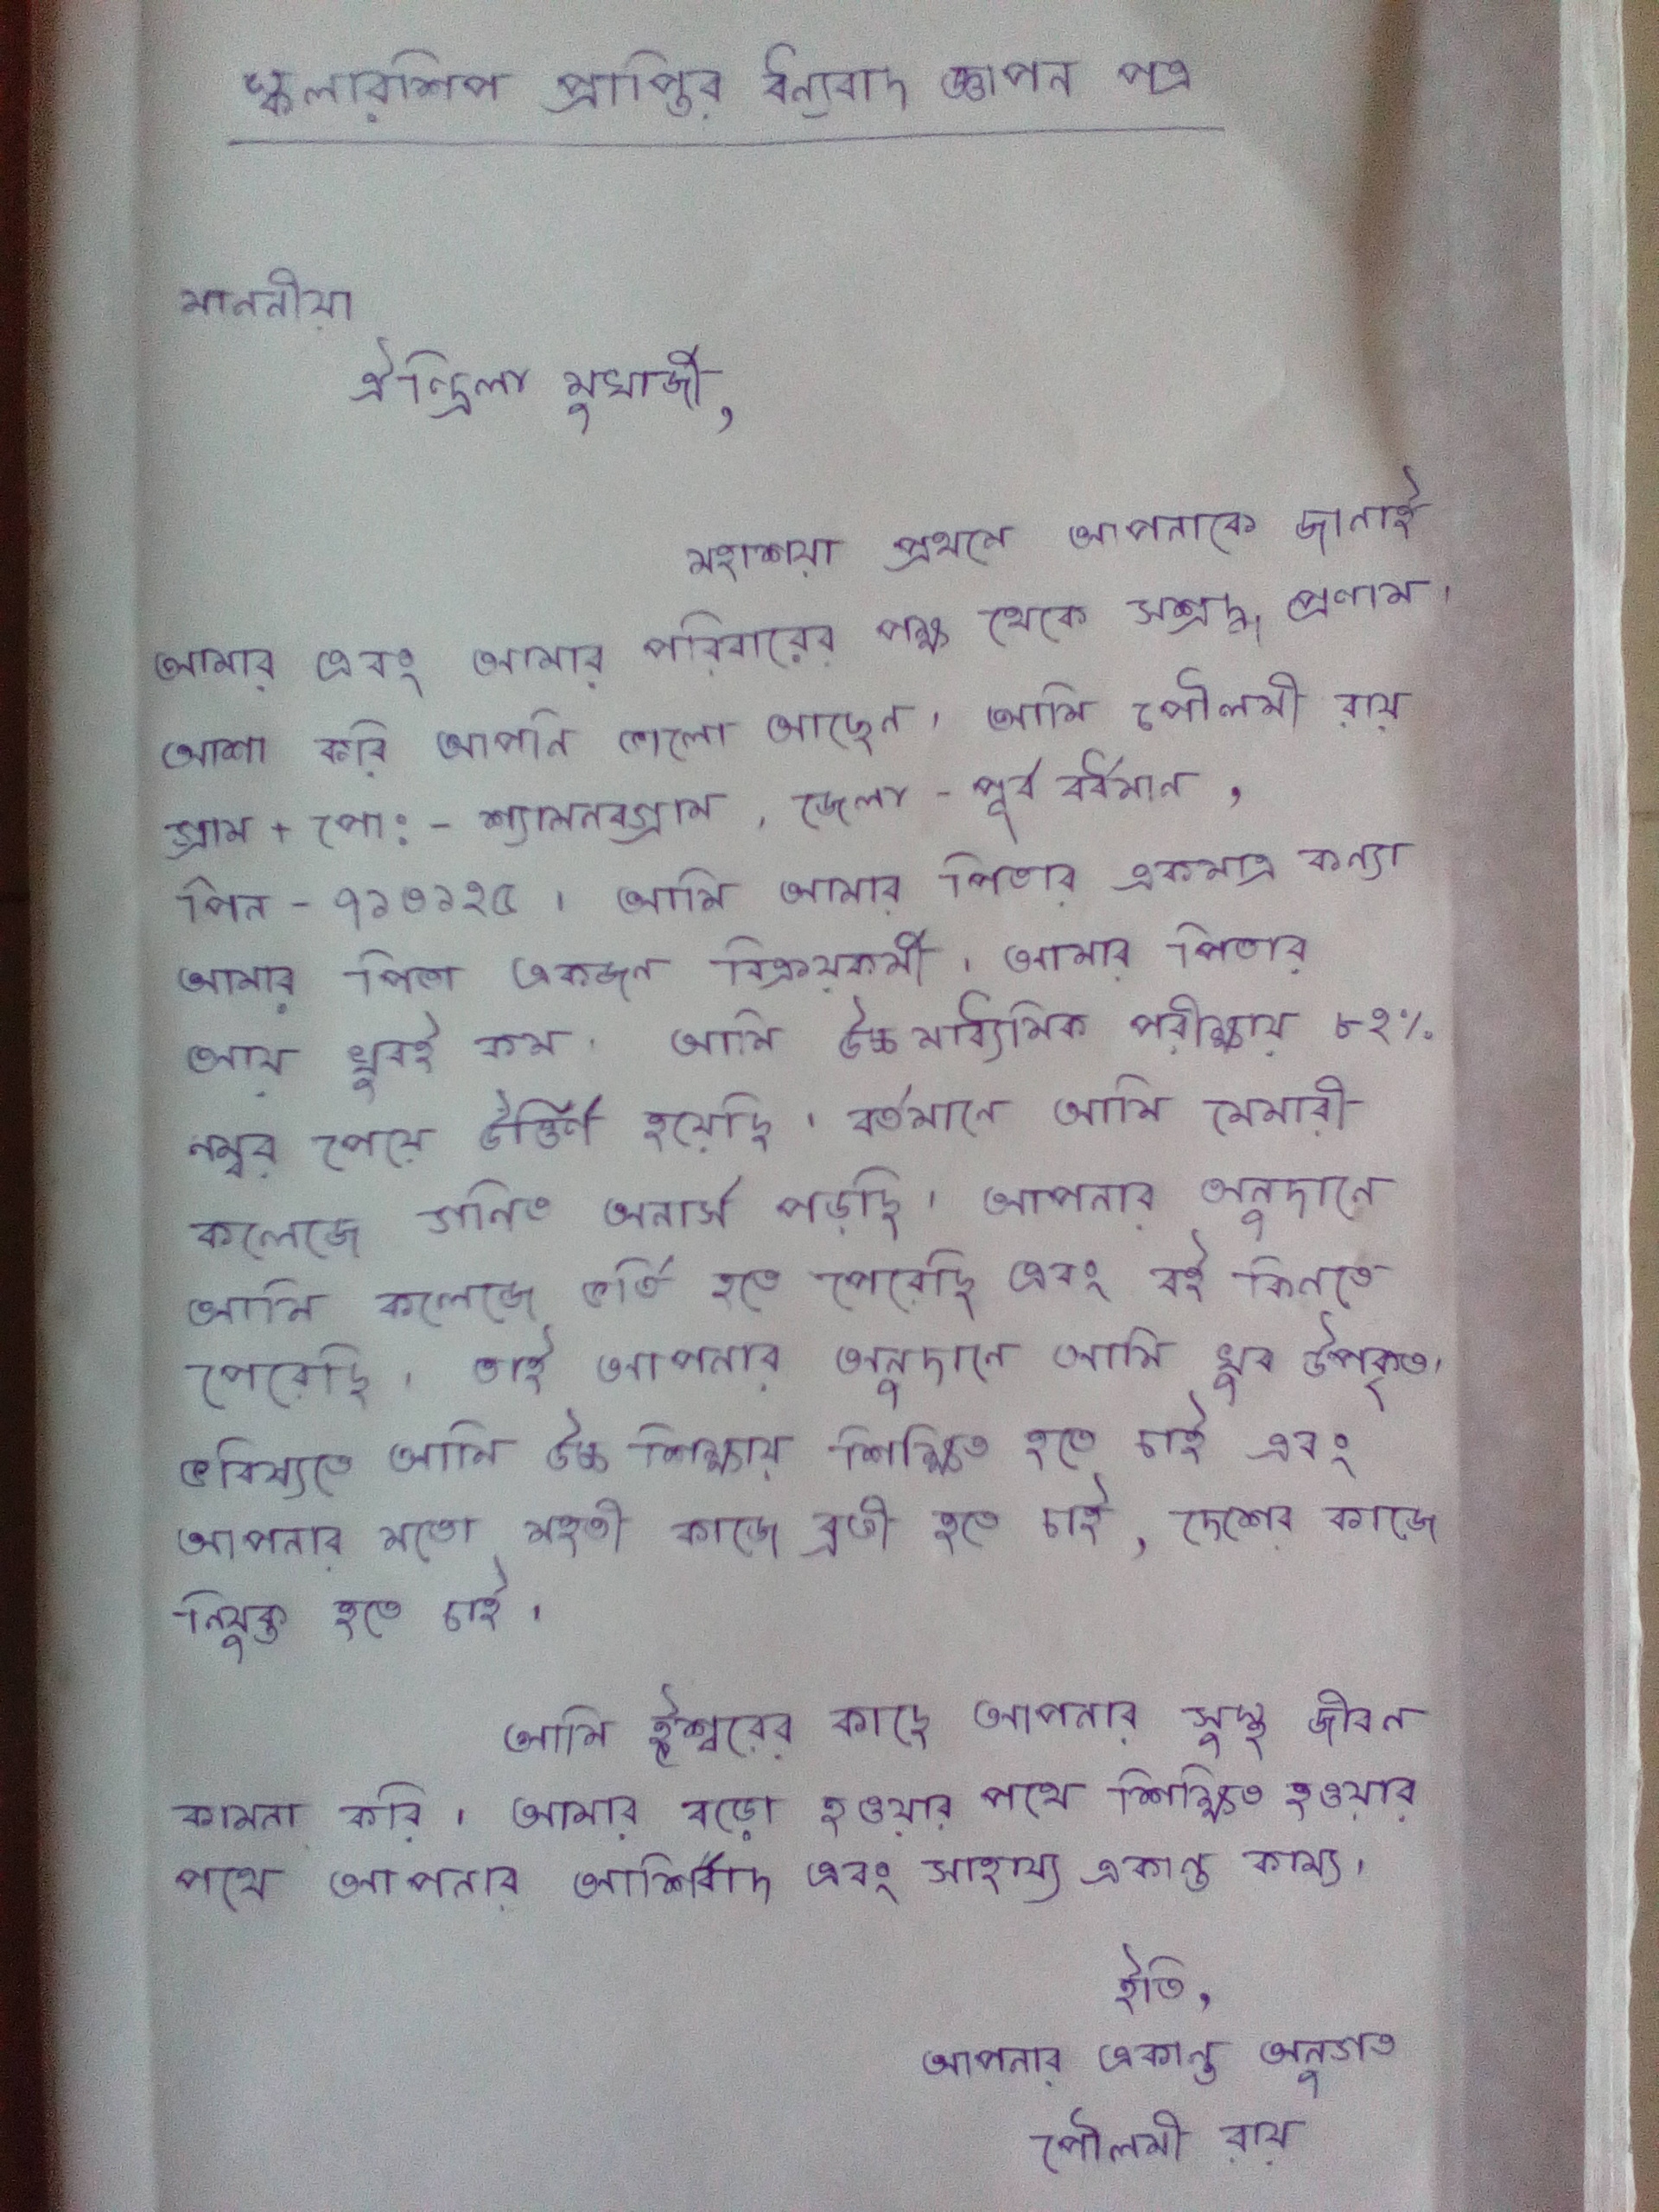 স্কলারশিপ প্রাপ্তির ধন্যবাদ জ্ঞাপন পত্র
মাননীয়া
ঐন্দ্রিলা মুখার্জী,
মহাশয়া প্রথমে আপনাকে জানাই
আমার এবং আমার পরিবারের পক্ষ থেকে সশ্রদ্ধ প্রণাম।
আশা করি আপনি ভালো আছেন। আমি পৌলমী রায়
গ্রাম + পোঃ - শ্যামনবগ্রাম, জেলা - পূর্ব বর্ধমান,
পিন - ৭১৩১২৫। আমি আমার পিতার একমাত্র কন্যা
আমার পিতা একজন বিক্রয়কর্মী। আমার পিতার
আয় খুবই কম। আমি উচ্চমাধ্যিমিক পরীক্ষায় ৮২%
নম্বর পেয়ে উর্ত্তিণ হয়েছি। বর্তমানে আমি মেমারী
কলেজে গনিত অনার্স পড়ছি। আপনার অনুদানে
আমি কলেজে ভর্তি হতে পেরেছি এবং বই কিনতে
পেরেছি। তাই আপনার অনুদানে আমি খুব উপকৃত।
ভবিষ্যতে আমি উচ্চ শিক্ষায় শিক্ষিত হতে চাই এবং
আপনার মতো মহতী কাজে ব্রতী হতে চাই, দেশের কাজে
নিযুক্ত হতে চাই।
আমি ঈশ্বরের কাছে আপনার সুস্থ জীবন
কামনা করি। আমার বড়ো হওয়ার পথে শিক্ষিত হওয়ার
পথে আপনার আর্শিবাদ এবং সাহায্য একান্ত কাম্য।
ইতি,
আপনার একান্ত অনুগত
পৌলমী রায়